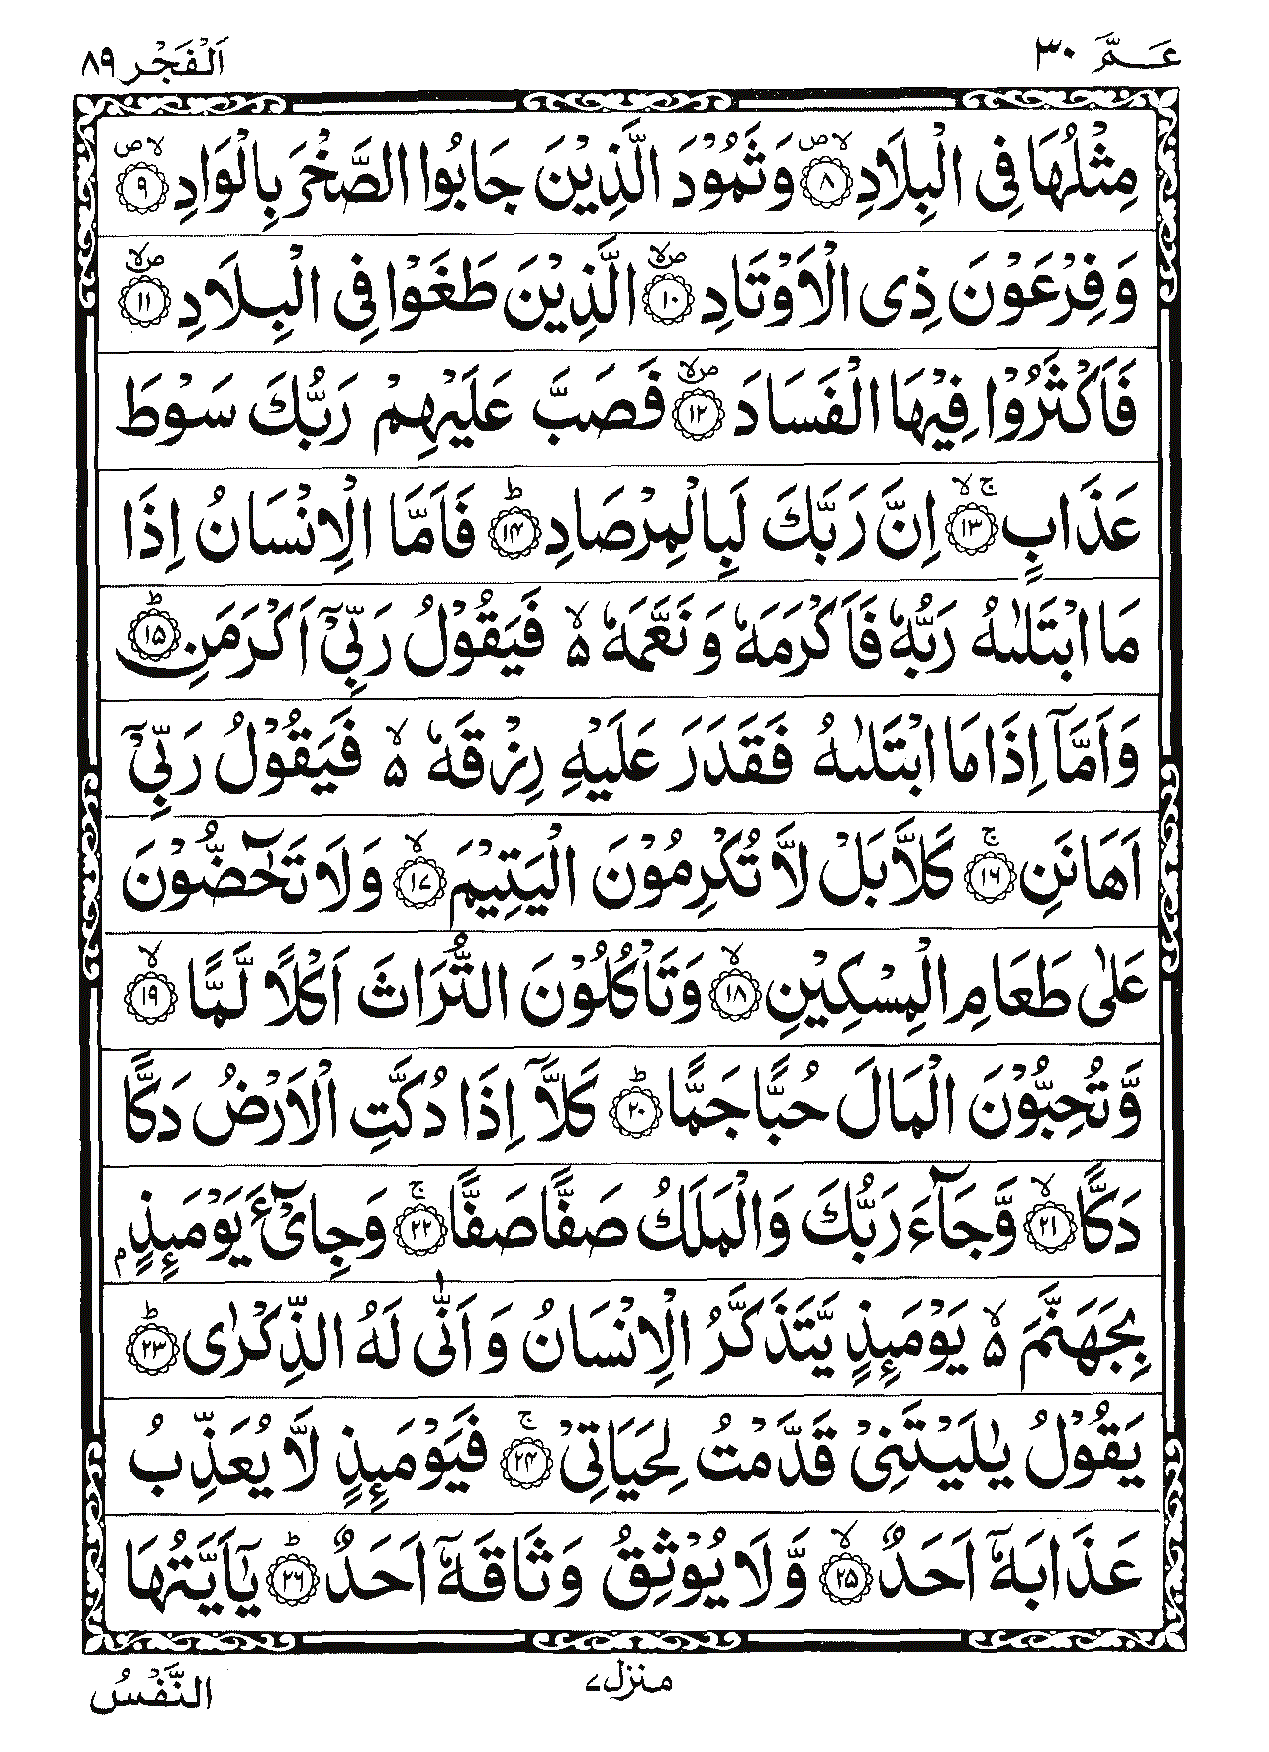 عَـمَّ ٣٠
اَلْفَجْر ٨٩
مِثْلُهَا فِى الْبِلَادِ ۪ۙ‏﴿٨﴾ وَثَمُوْدَ الَّذِيْنَ جَابُوا الصَّخْرَ بِالْوَادِ ۪ۙ‏﴿٩﴾
وَفِرْعَوْنَ ذِى الْاَوْتَادِ ۪ۙ‏﴿١٠﴾ الَّذِيْنَ طَغَوْا فِى الْبِلَادِ ۪ۙ‏﴿١١﴾
فَاَكْثَرُوْا فِيْهَا الْفَسَادَ ۪ۙ‏﴿١٢﴾ فَصَبَّ عَلَيْهِمْ رَبُّكَ سَوْطَ
عَذَابٍ ۚۙ‏﴿١٣﴾ اِنَّ رَبَّكَ لَبِالْمِرْصَادِ ؕ‏﴿١٤﴾ فَاَمَّا الْاِنْسَانُ اِذَا
مَا ابْتَلٰٮهُ رَبُّهٗ فَاَكْرَمَهٗ وَنَعَّمَهٗ ۙ۵ فَيَقُوْلُ رَبِّىْۤ اَكْرَمَنِ ؕ‏﴿١٥﴾
وَاَمَّاۤ اِذَا مَا ابْتَلٰٮهُ فَقَدَرَ عَلَيْهِ رِزْقَهٗ ۙ۵ فَيَقُوْلُ رَبِّىْۤ
اَهَانَنِ ۚ‏﴿١٦﴾ كَلَّا بَلْ لَّا تُكْرِمُوْنَ الْيَتِيْمَ ۙ‏﴿١٧﴾ وَلَا تَحٰٓضُّوْنَ
عَلٰى طَعَامِ الْمِسْكِيْنِ ۙ‏﴿١٨﴾ وَتَاْكُلُوْنَ التُّرَاثَ اَكْلًا لَّمًّا ۙ‏﴿١٩﴾
وَّتُحِبُّوْنَ الْمَالَ حُبًّا جَمًّا ؕ‏﴿٢٠﴾ كَلَّاۤ اِذَا دُكَّتِ الْاَرْضُ دَكًّا
دَكًّا ۙ‏﴿٢١﴾ وَّجَآءَ رَبُّكَ وَالْمَلَكُ صَفًّا صَفًّا ۚ‏﴿٢٢﴾ وَجِاىْٓءَ يَوْمَئِذٍۭ
بِجَهَنَّمَ ۙ۵ يَوْمَئِذٍ يَّتَذَكَّرُ الْاِنْسَانُ وَاَنّٰى لَهُ الذِّكْرٰى ؕ‏﴿٢٣﴾
يَقُوْلُ يٰلَيْتَنِىْ قَدَّمْتُ لِحَيَاتِىْ ۚ‏﴿٢٤﴾ فَيَوْمَئِذٍ لَّا يُعَذِّبُ
عَذَابَهٗۤ اَحَدٌ ۙ‏﴿٢٥﴾ وَّلَا يُوْثِقُ وَثَاقَهٗۤ اَحَدٌ ؕ‏﴿٢٦﴾ يٰۤاَيَّتُهَا
منزل ٧
النَّفْسُ